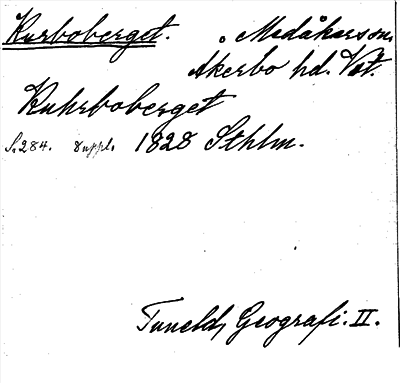 Kurboberget. Medåkers sn.
Åkerbo hd. Vstm.
Kuhrboberget
S. 284. suppl. 1828 Sthlm.
Tuneld, Geografi. II.